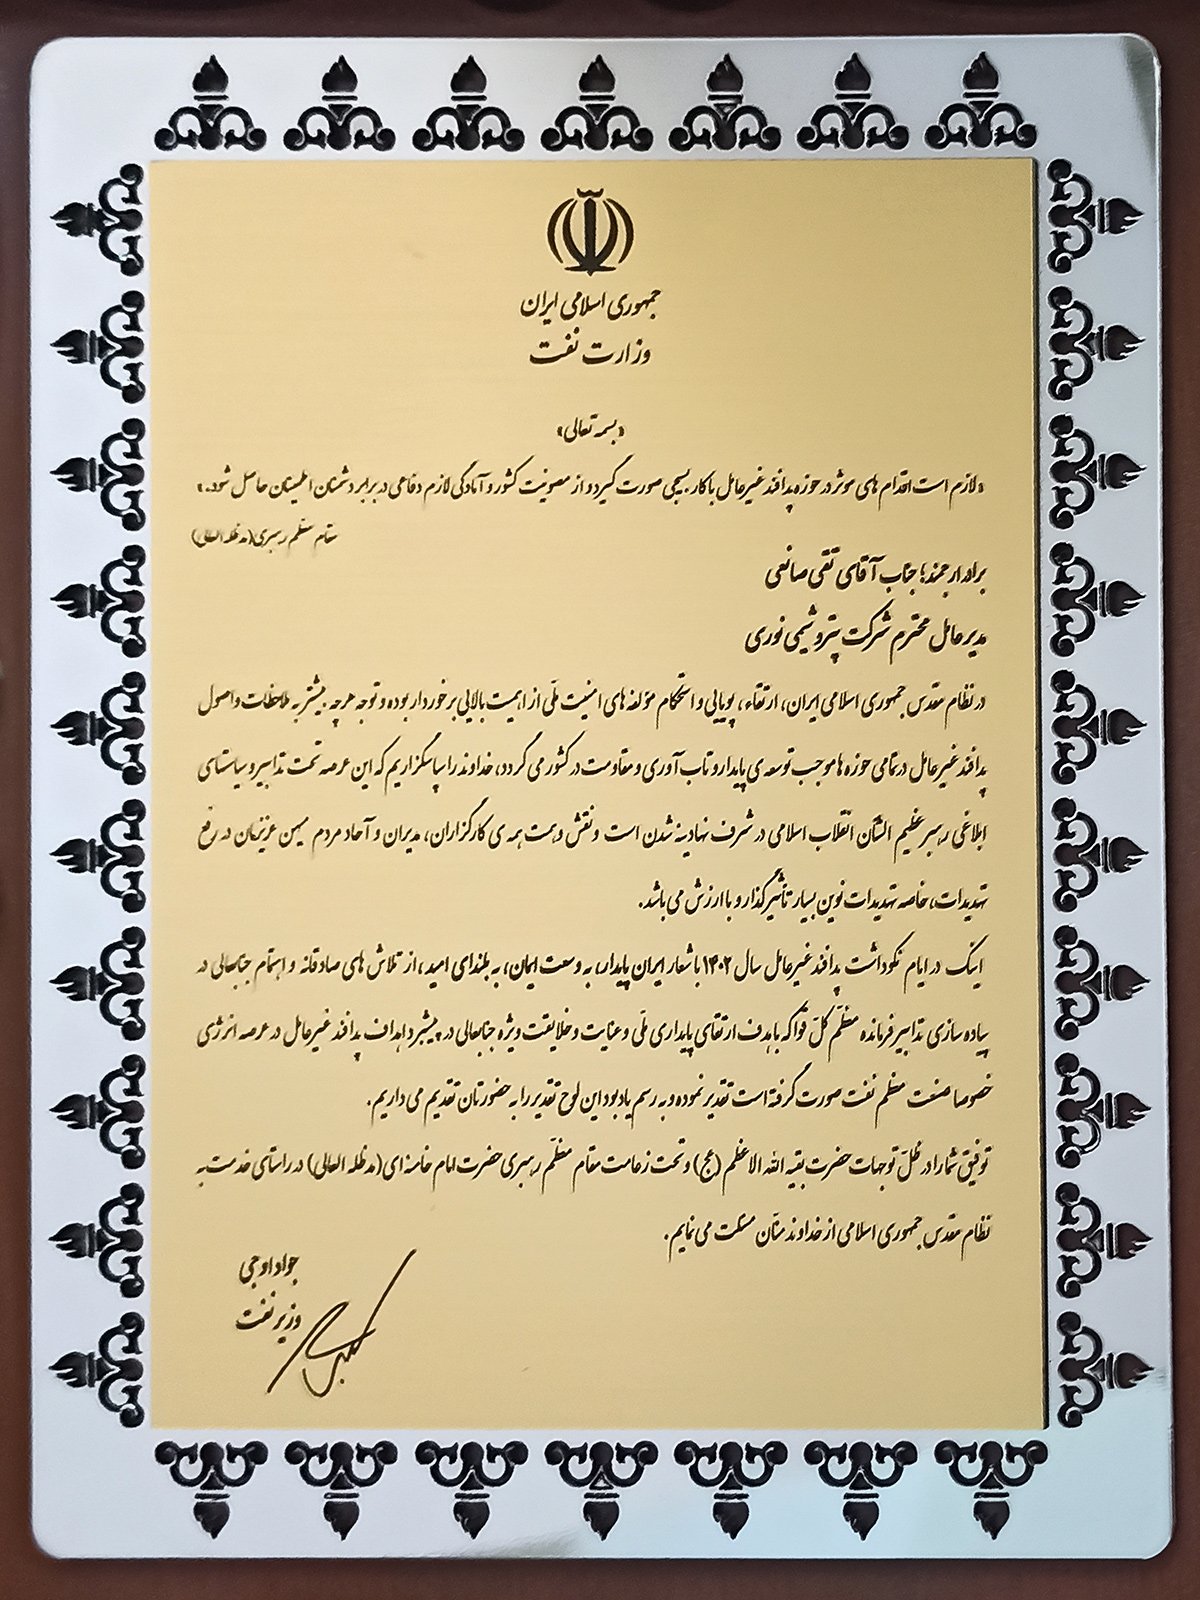 جمهوری اسلامی ایران
وزارت نفت
«بسمه تعالی»
«لازم است اقدام های موثر در حوزه پدافند غیرعامل با کار بسیجی صورت گیرد و از مصونیت کشور و آمادگی لازم دفاعی در برابر دشمنان اطمینان حاصل شود.»
مقام معظم رهبری(مدظله العالی)
برادر ارجمند؛ جناب آقای تقی صانعی
مدیرعامل محترم شرکت پتروشیمی نوری
در نظام مقدس جمهوری اسلامی ایران، ارتقاء، پویایی و استحکام مؤلفه های امنیت ملّی از اهمیت بالایی برخوردار بوده و توجه هرچه بیشتر به ملاحظات و اصول
پدافند غیرعامل در تمامی حوزه ها موجب توسعه ی پایدار و تاب آوری و مقاومت در کشور می گردد، خداوند را سپاسگزاریم که این عرصه تحت تدابیر و سیاستهای
ابلاغی رهبر عظیم الشأن انقلاب اسلامی در شرف نهادینه شدن است و نقش و همت همه ی کارگزاران، مدیران و آحاد مردم میهن عزیزمان در رفع
تهدیدات، خاصه تهدیدات نوین بسیار تأثیرگذار و با ارزش می باشد.
اینک در ایام نکوداشت پدافند غیرعامل سال ۱۴۰۲ با شعار ایران پایدار، به وسعت ایمان، به بلندای امید، از تلاش های صادقانه و اهتمام جنابعالی در
پیاده سازی تدابیر فرمانده معظّم کلّ قوا که با هدف ارتقای پایداری ملّی و عنایت و خلاقیت ویژه جنابعالی در پیشبرد اهداف پدافند غیرعامل در عرصه انرژی
خصوصا صنعت معظم نفت صورت گرفته است تقدیر نموده و به رسم یادبود این لوح تقدیر را به حضورتان تقدیم می داریم.
توفیق شما را در ظلّ توجهات حضرت بقیه الله الاعظم (عج) و تحت زعامت مقام معظّم رهبری حضرت امام خامنه ای (مدظله العالی) در راستای خدمت به
نظام مقدس جمهوری اسلامی از خداوند منّان مسئلت می نمایم.
جواد اوجی
وزیر نفت